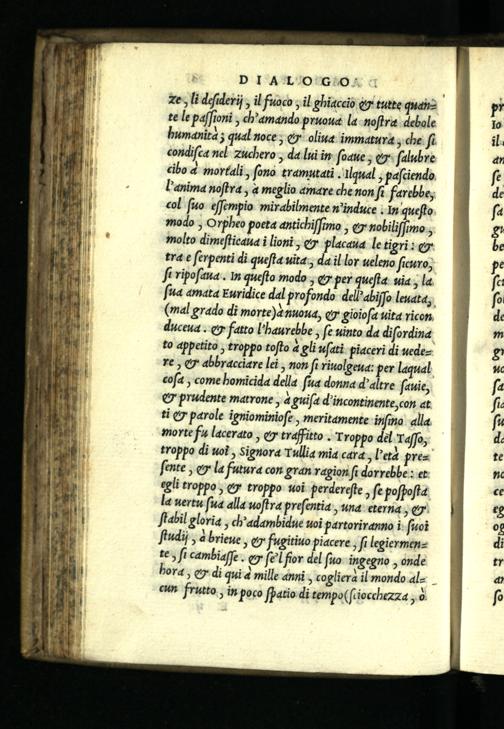 DIALOGO
ze, li desiderij, il fuoco, il ghiaccio & tutte quan=
te le passioni, ch'amando pruova la nostra debole
humanità; qual noce, & oliva immatura, che si
condisca nel zuchero, da lui in soave, & salubre
cibo à mortali, sono tramutati. Ilqual, pasciendo
l'anima nostra, à meglio amare che non si farebbe,
col suo essempio mirabilmente n'induce. In questo
modo, Orpheo poeta antichissimo, & nobilissimo,
molto dimesticava i lioni, & placava le tigri: &
tra e serpenti di questa vita, da il lor veleno sicuro,
si riposava. In questo modo, & per questa via, la
sua amata Euridice dal profondo dell'abisso levata,
(mal grado di morte) à nuova, & gioiosa vita ricon
duceva. & fatto l'haurebbe, se vinto da disordina
to appetito, troppo tosto à gli usati piaceri di vede=
re, & abbracciare lei, non si rivolgeva: per laqual
cosa, come homicida della sua donna d'altre savie,
& prudente matrone, à guisa d'incontinente, con at
ti & parole igniominiose, meritamente insino alla
morte fu lacerato, & traffitto. Troppo del Tasso,
troppo di voi, Signora Tullia mia cara, l'età pre=
sente, & la futura con gran ragion si dorrebbe: et
egli troppo, & troppo voi perdereste, se posposta
la vertu sua alla vostra presentia, una eterna, &
stabil gloria, ch'adambidue voi partoriranno i suoi
studij, à brieve, & fugitivo piacere, si legiermen=
te, si cambiasse. & se'l fior del suo ingegno, onde
hora, & di qui à mille anni, coglierà il mondo al=
cun frutto, in poco spatio di tempo (sciocchezza, ò